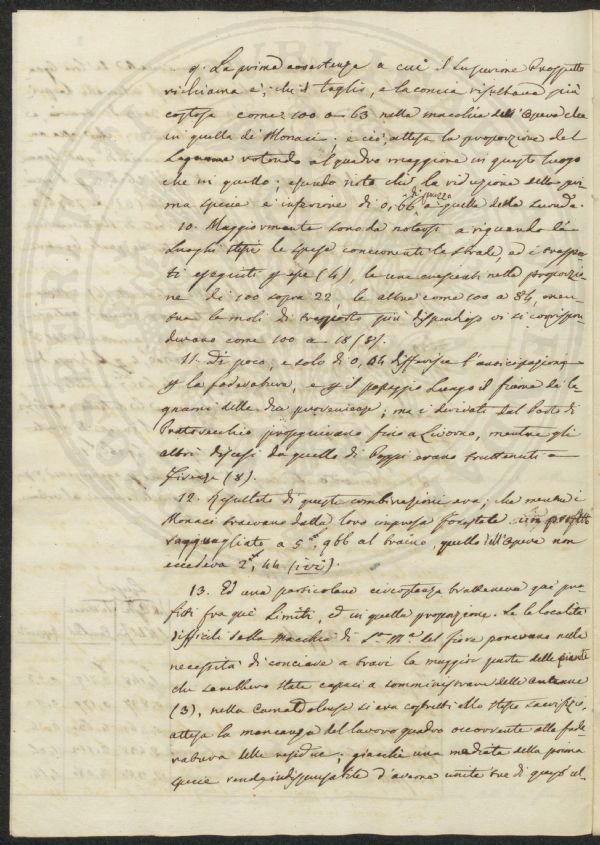 9. La prima avvertenza a cui il superiore Prospetto
richiama è, che il taglio, e la concia risultava più
costosa come 100 a 63 nella macchia dell'Opera che
in quella di Monaci; e ciò, attesa la proporzione del
Legname rotondo al quadro maggiore in questo luogo
che in quello; essendo noto che la riduzione della pri-
ma specie è inferiore di 0,66 di prezzo a quella della seconda.
10. Maggiormente sono da notarsi a riguardo dei
Luoghi stessi le spese concernenti le strade, ed i traspor-
ti eseguiti per esse (4), le une crescenti nella proporzio-
ne di 100 sopra 22, le altre come 100 a 84, men-
tre le moli di trasporto più dispendioso vi si corrispon-
devano come 100 a 18 (8).
11. Di poco, e solo di 0,04 differisce l'anticipazione
per la foderatura, e per il passaggio lungo il fiume dei le-
gnami delle due provenienze; ma i derivati dal Porto di
Pratovecchio proseguivano fino a Livorno, mentre gli
altri discesi da quello di Poppi erano trattenuti a
Firenze (8).
12. Resultato di queste combinazioni era; che mentre i
Monaci traevano dalla loro impresa forestale un profitto
ragguagliato a 5, 966 al traino, quello dell'Opera non
eccedeva 2, 44 (ivi).
13. Ed una particolare circostanza tratteneva qui pro-
fitti fra quei limiti, ed in quella proporzione. Se le località
difficili della Macchia di S.ta M.a del fiore ponevano nella
necessità di conciare a travi la maggior parte delle piante
che sarebbero state capaci a somministrare delle antenne
(3), nella Camaldolense si era costretti allo stesso sacrifizio,
attesa la mancanza del lavoro quadro occorrente alla fode-
ratura delle residue; giacchè una media della prima
specie rende indispensabile d'averne unite tre di quest'ul-